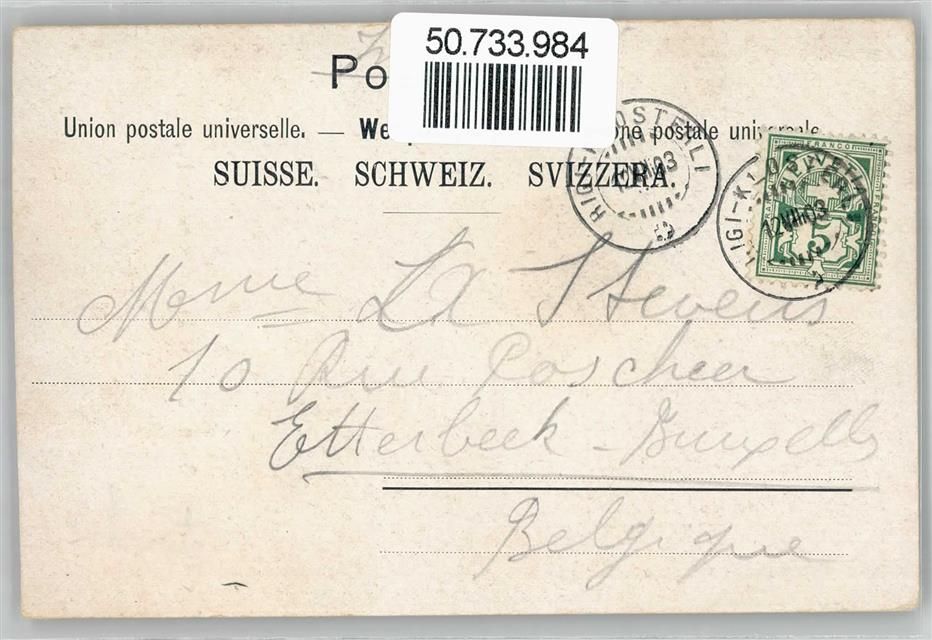 50.733.984
Po
Union postale universelle. — We one postale universale
SUISSE. SCHWEIZ. SVIZZERA.
RIGI-KLÖSTERLI
12 VIII 03
RIGI-KLÖSTERLI
12 VIII 03
FRANCO
HELVETIA
5
Mme Stevens
10 Rue
Etterbeek - Bruxelles
Belgique